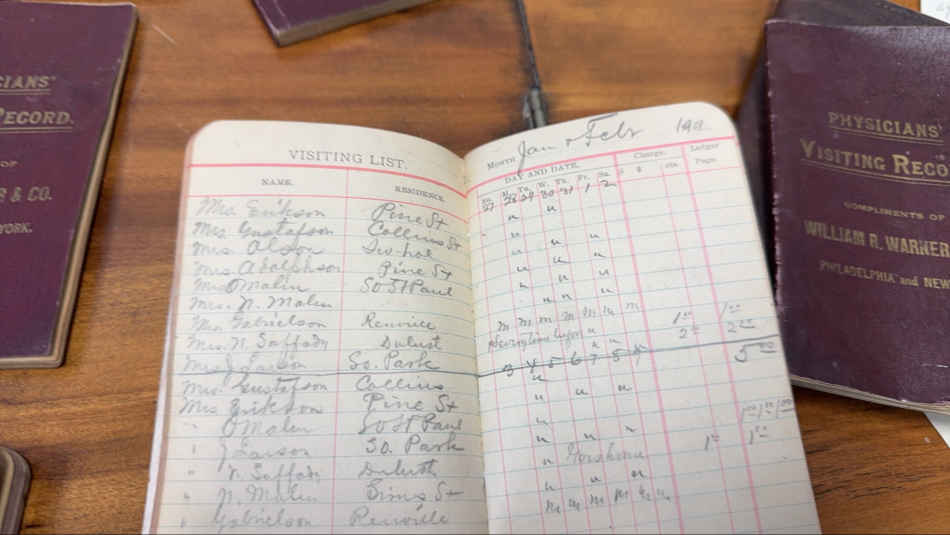 CIANS'
RECORD.
OF
& CO.
YORK.
VISITING LIST.
NAME. RESIDENCE.
Mrs. Erikson Pine St
Mrs Gustafson Collins St
Mrs Olson
Mrs Adolphson Pine St
Mrs O Malin So St Paul
Mrs. N. Malin
Mrs Gabrielson
Mrs. N. Saffady Duluth
Mrs J Larson So. Park
Mrs Gustafson Collins
Mrs Erikson Pine St
" O Malin So St Paul
" J Larson So. Park
" N. Saffady Duluth
" N. Malin Sims St
" Gabrielson Renville
Month Jan & Feb 190
DAY AND DATE. Charge. Ledger Page.
Su. M. Tu. W. Th. Fr. Sa. $ cts.
27 28 29 30 31 1 2
m m m m m m m
1 00 1 00
2 00 2 00
3 4 5 6 7 8 9
5 00
1 00 1 00 1 00
1 00 1 00
m m m m m m
PHYSICIANS'
VISITING RECO
COMPLIMENTS OF
WILLIAM R. WARNER
PHILADELPHIA and NEW